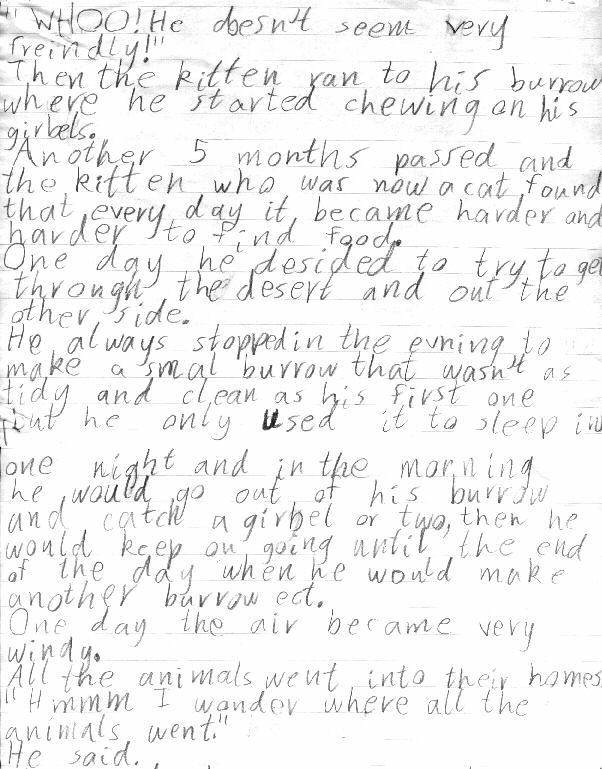 " WHOO! He doesn't seem very
freindly!"
Then the kitten ran to his burrow
where he started chewing on his
girbels.
Another 5 months passed and
the kitten who was now a cat found
that every day it became harder and
harder to find food.
One day he desided to try to get
through the desert and out the
other side.
He always stopped in the evning to
make a smal burrow that wasn't as
tidy and clean as his first one
but he only used it to sleep in
one night and in the morning
he would go out of his burrow
and catch a girbel or two, then he
would keep on going until the end
of the day when he would make
another burrow ect.
One day the air became very
windy.
All the animals went into their homes
"Hmmm I wonder where all the
animals went."
He said.